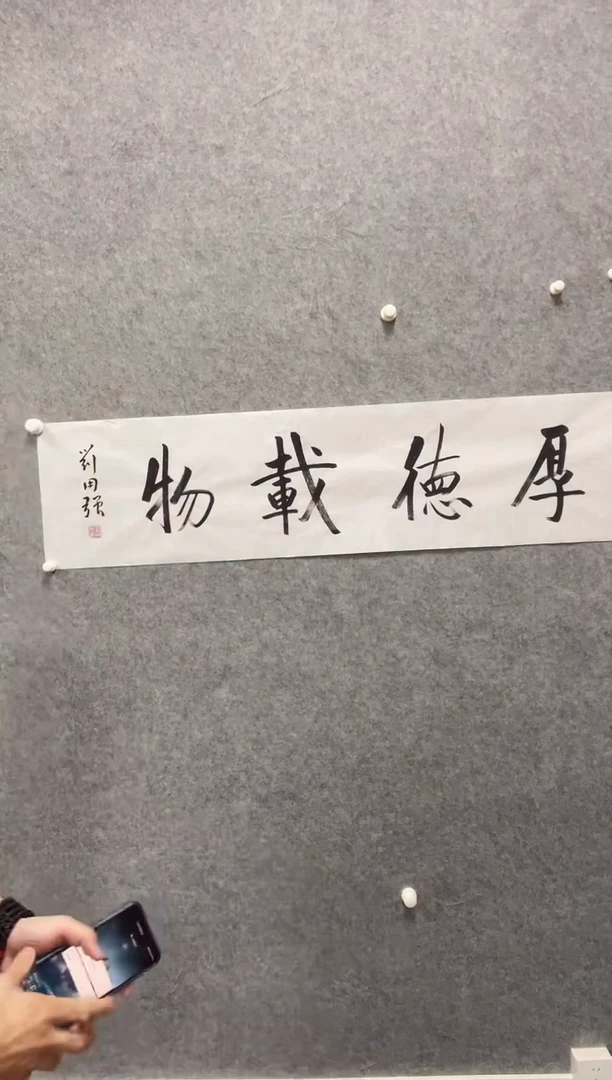 厚德載物
劉田强